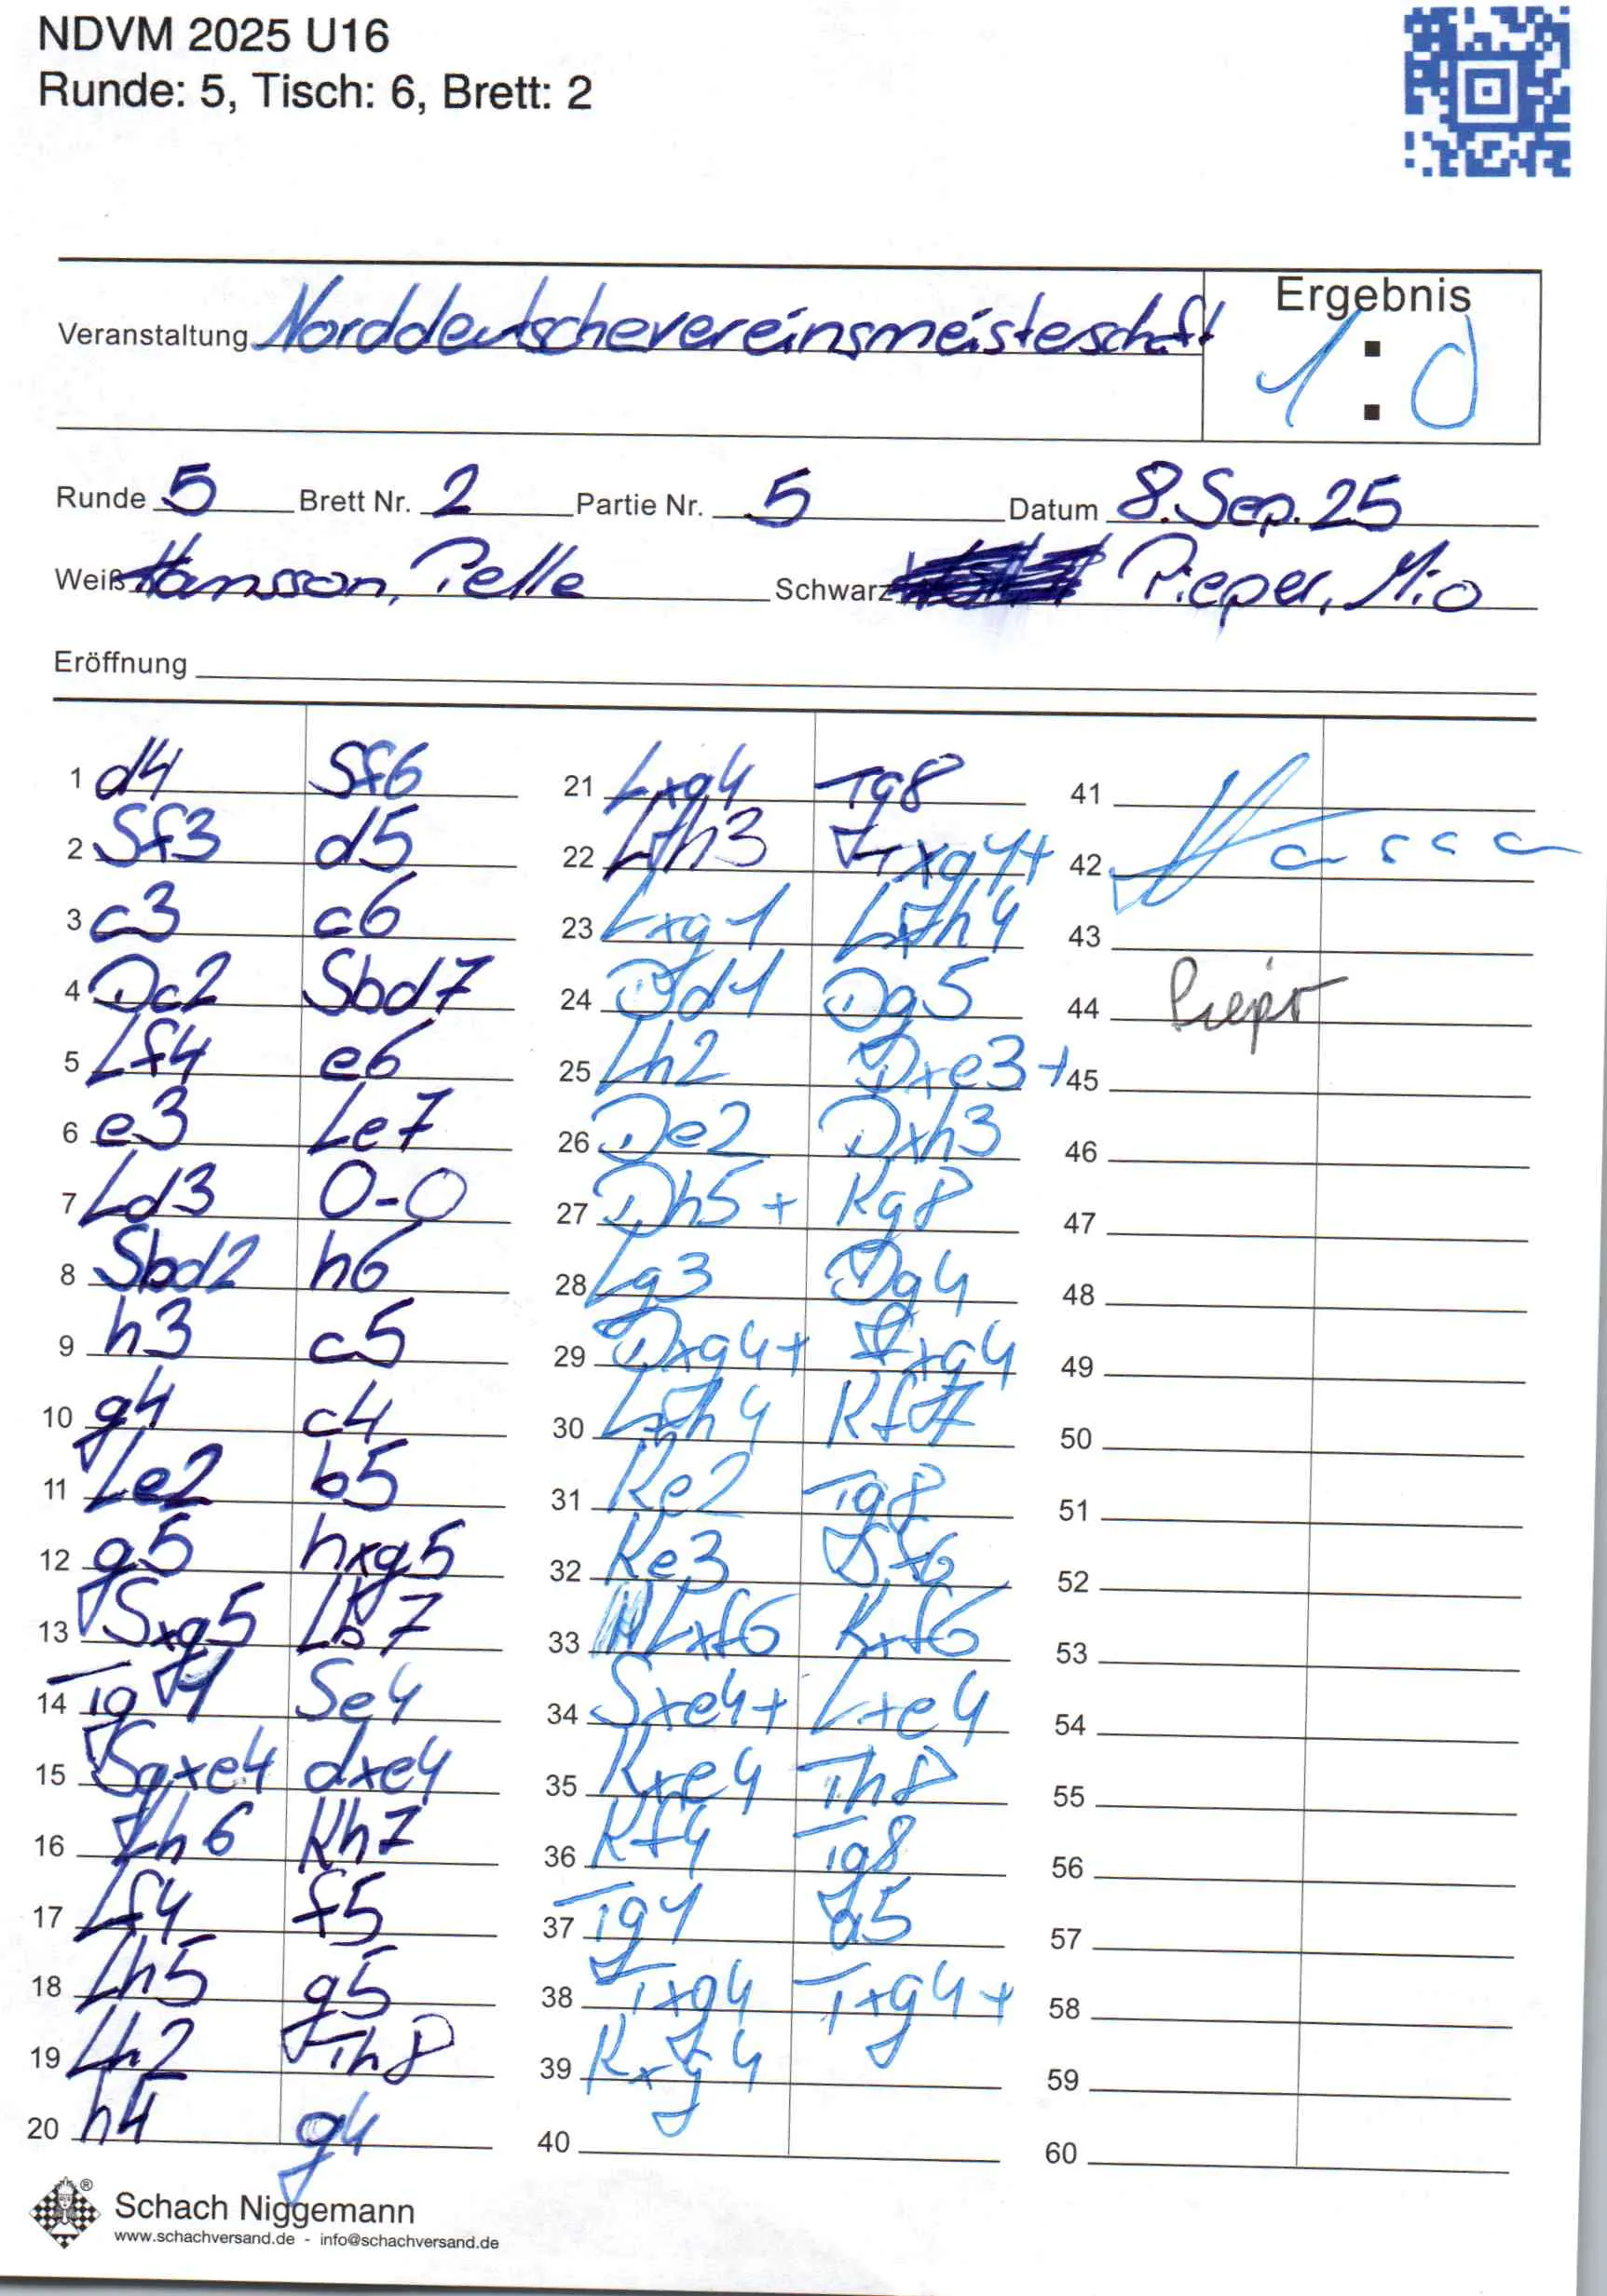 NDVM 2025 U16
Runde: 5, Tisch: 6, Brett: 2
Ergebnis
Veranstaltung Norddeutschevereinsmeisteschaft 1:0
Runde 5 Brett Nr. 2 Partie Nr. 5 Datum 8.Sep.25
Weiß Hansson, Pelle Schwarz Pieper, Mio
Eröffnung
1 d4 Sf6
2 Sf3 d5
3 c3 c6
4 Dc2 Sbd7
5 Lf4 e6
6 e3 Le7
7 Ld3 0-0
8 Sbd2 h6
9 h3 c5
10 g4 c4
11 Le2 b5
12 g5 hxg5
13 Sxg5 Lb7
14 Tg1 Se4
15 Sgxe4 dxe4
16 Lh6 Kh7
17 Lf4 f5
18 Lh5 g5
19 Lh2 Th8
20 h4 g4
21 Lxg4 Tg8
22 Lh3 Txg1+
23 Lxg1 Lxh4
24 Dd1 Dg5
25 Lh2 Dxe3+
26 De2 Dxh3
27 Dh5+ Kg8
28 Lg3 Dg4
29 Dxg4+ fxg4
30 Lxh4 Kf7
31 Ke2 Tg8
32 Ke3 Sf6
33 Lxf6 Kxf6
34 Sxe4+ Lxe4
35 Kxe4 Th8
36 Kf4 Tg8
37 Tg1 a5
38 Txg4 Txg4+
39 Kxg4
40
41
42
43
44 Pieper
45
46
47
48
49
50
51
52
53
54
55
56
57
58
59
60
Schach Niggemann
www.schachversand.de - info@schachversand.de